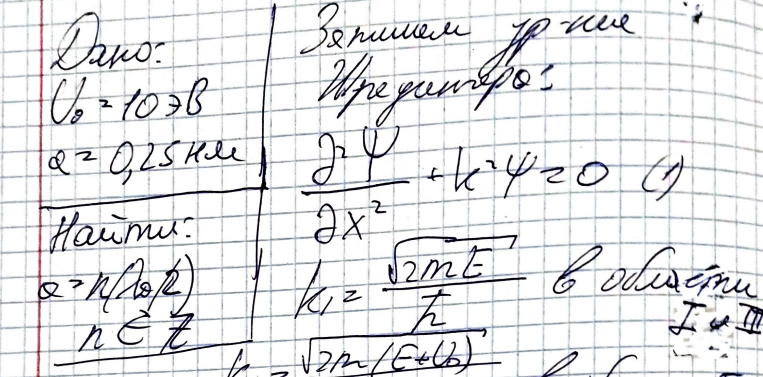 Дано:
U₀ = 10 эВ
a = 0,25 нм
Найти:
a = n(λ₀/2)
n ∈ Z
Запишем ур-ние
Шредингера:
∂²Ψ/∂x² + k²Ψ = 0 (1)
k₁ = √(2mE)/ħ в области
I и III
√(2m(E+U₀))